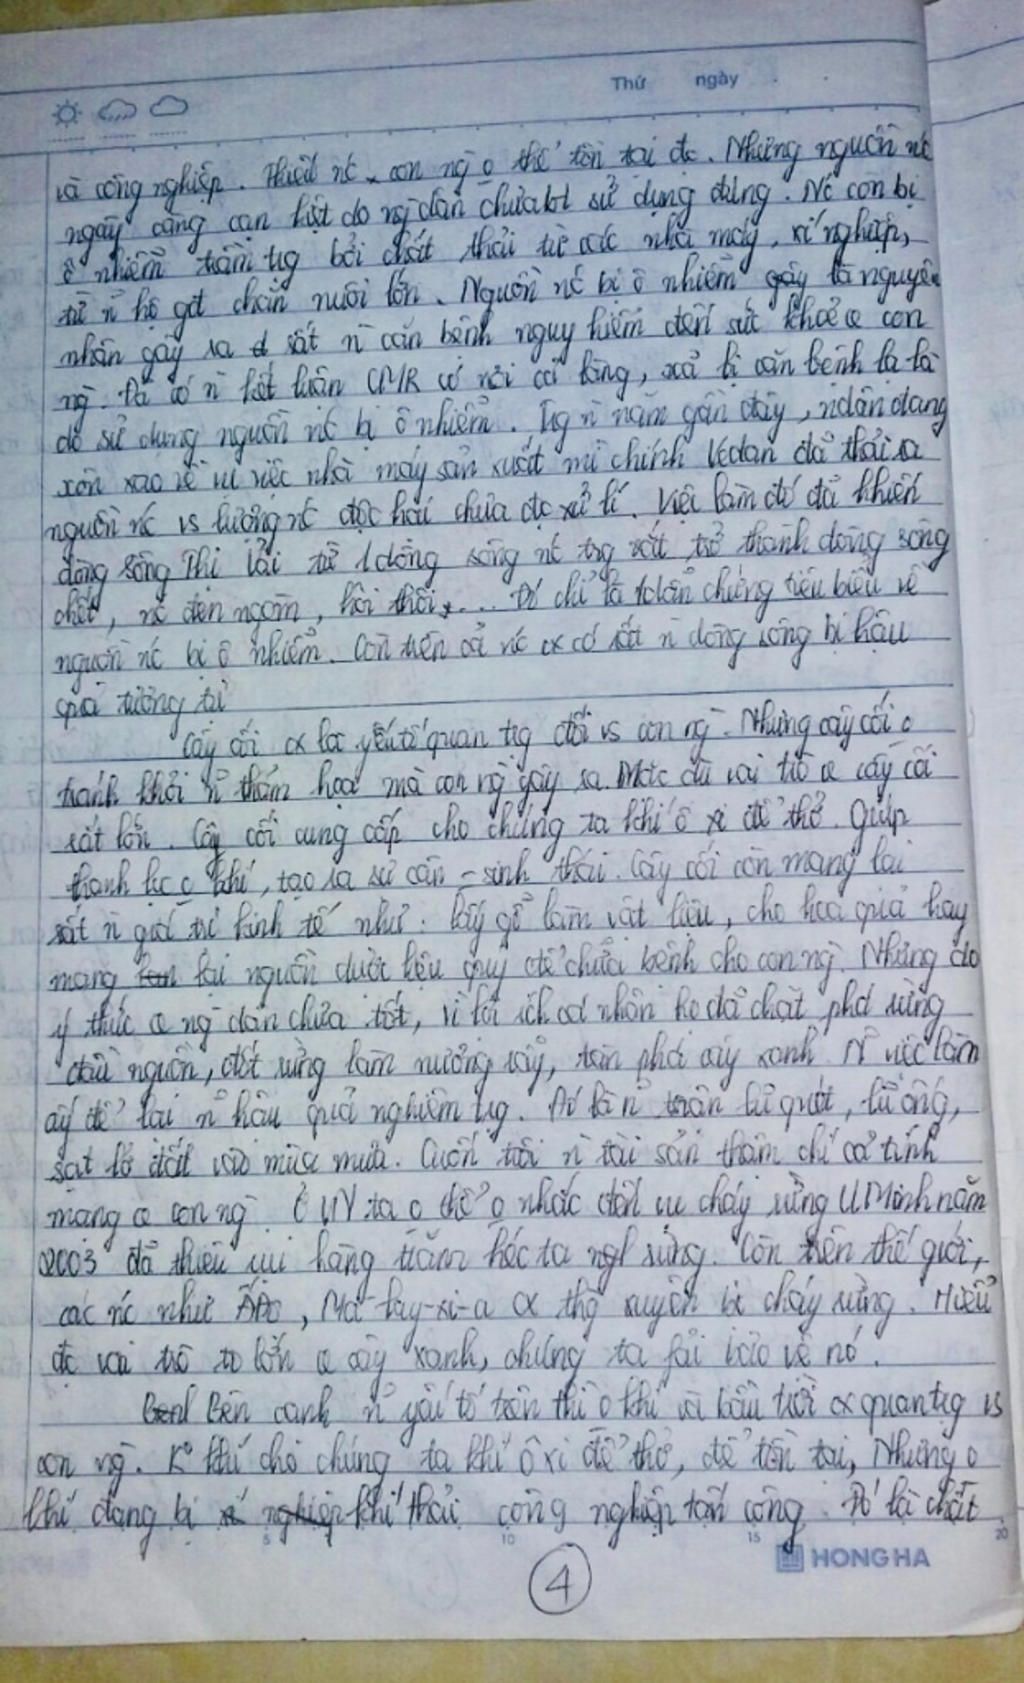 Thứ ngày
và công nghiệp. Thiếu nc con ng o thể tồn tại đc. Những nguồn nc
ngày càng cạn kiệt do ng dân chưa bt sử dụng đúng. Nc còn bị
ô nhiễm trầm tṛg bởi chất thải từ các nhà máy, xí nghiệp,
từ n hộ gđ chăn nuôi lớn. Nguồn nc bị ô nhiễm gây là nguyên
nhân gây ra rất n căn bệnh nguy hiểm đến sức khoẻ con
ng. Đã có n kết luận CMR có nơi cả làng, xã bị căn bệnh lạ là
do sử dụng nguồn nc bị ô nhiễm. Tṛg n năm gần đây, ndân đang
xôn xao về vụ việc nhà máy sản xuất mì chính Vedan đã thải ra
nguồn nc vs lượng nc độc hại chưa đc xử lí. Việc làm đó đã khiến
dòng sông Thị Vải từ 1 dòng sông nc tṛg vắt trở thành dòng sông
chết, nc đen ngòm, hôi thối,... Đó chỉ là 1 dẫn chứng tiêu biểu về
nguồn nc bị ô nhiễm. Còn trên cả nc cx có rất n dòng sông bị hậu
quả tương tự
Cây cối cx là yếu tố quan tṛg đối vs con ng. Nhưng cây cối o
tránh khỏi n thảm hoạ mà con ng gây ra. Mặc dù vai trò cây cối
rất lớn. Cây cối cung cấp cho chúng ta khí ô xi để thở. Giúp
thanh lọc o khí, tạo ra sự cân = sinh thái. Cây cối còn mang lại
rất n giá trị kinh tế như: lấy gỗ làm vật liệu, cho hoa quả hay
mang lại nguồn dược liệu quý để chữa bệnh cho con ng. Nhưng do
ý thức ng dân chưa tốt, vì lợi ích cá nhân họ đã chặt phá rừng
đầu nguồn, đốt rừng làm nương rẫy, tàn phá cây xanh. N việc làm
ấy để lại n hậu quả nghiêm tṛg. Đó là n trận lũ quét, lũ ống,
sạt lở đất vào mùa mưa. Cuốn trôi n tài sản thậm chí cả tính
mạng con ng. Ở VN ta o thể o nhắc đến vụ cháy rừng U Minh năm
2003 đã thiêu rụi hàng trăm héc ta rừng. Còn trên thế giới,
các nc như Ấn Độ, Ma-lay-xi-a cx thg xuyên bị cháy rừng. Hiểu
đc vai trò to lớn cây xanh, chúng ta fải bảo vệ nó.
Bên cạnh n yếu tố trên thì o khí và bầu trời cx quan tṛg vs
con ng. K khí cho chúng ta khí ô xi để thở, để tồn tại, Nhưng o
khí đang bị khí thải công nghiệp tấn công. Đó là chất
5 10 15 20
HONG HA
4